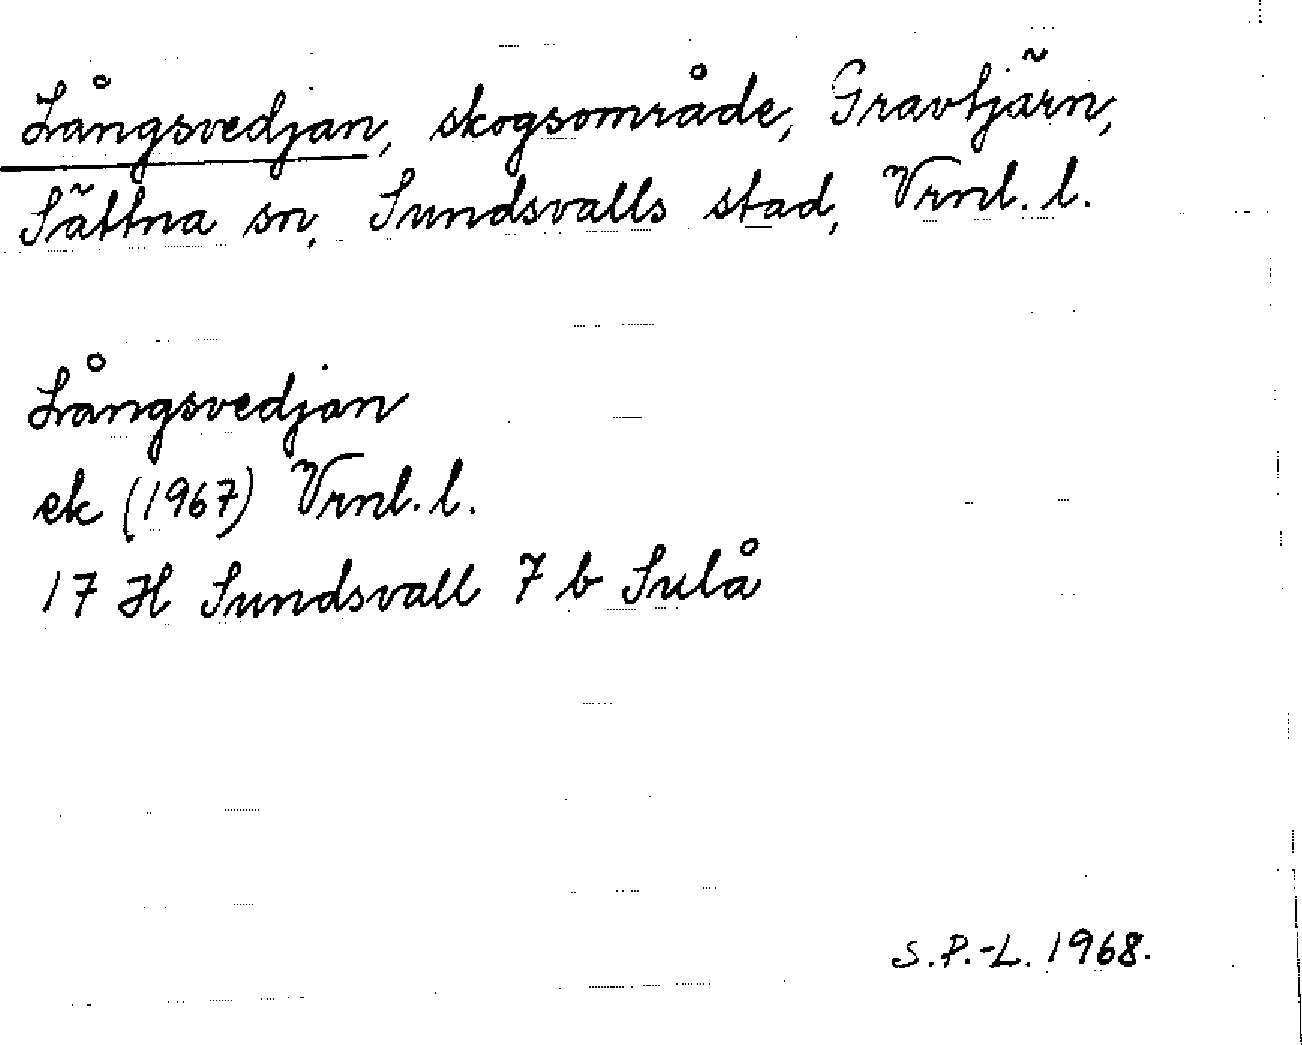 Långsvedjan, skogsområde, Gravtjärn,
Sättna sn, Sundsvalls stad, Vrnl. l.
Långsvedjan
ek (1967) Vrnl. l.
17 H Sundsvall 7 b Sulå
S.P.-L. 1968.